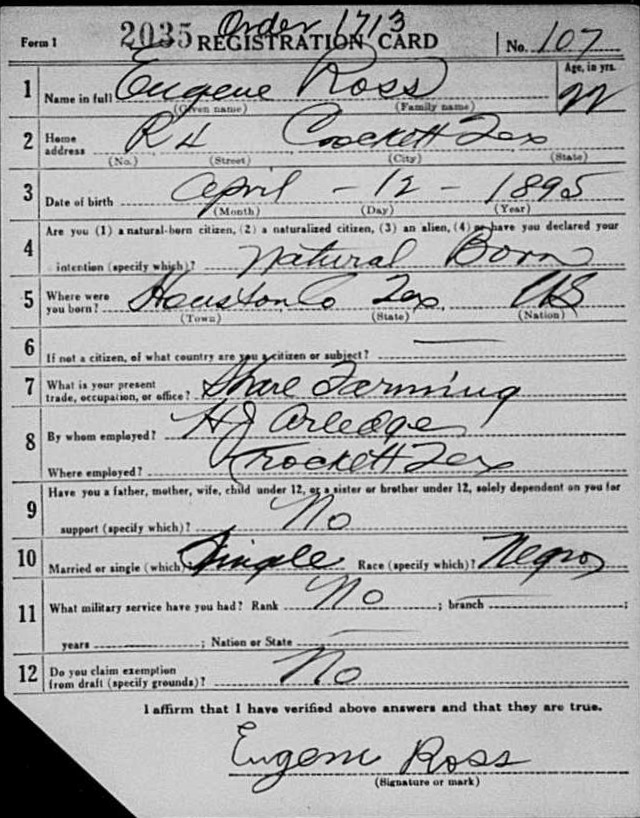 Order 1713
Form 1 2035 REGISTRATION CARD No. 107
1 Name in full Eugene Ross Age, in yrs. 22
(Given name) (Family name)
2 Home address R 4 Crockett Tex
(No.) (Street) (City) (State)
3 Date of birth April - 12 - 1895
(Month) (Day) (Year)
4 Are you (1) a natural-born citizen, (2) a naturalized citizen, (3) an alien, (4) or have you declared your
intention (specify which)? Natural Born
5 Where were you born? Houston Co Tex US
(Town) (State) (Nation)
6 If not a citizen, of what country are you a citizen or subject?
7 What is your present trade, occupation, or office? Share Farming
8 By whom employed? H J Arledge
Where employed? Crockett Tex
9 Have you a father, mother, wife, child under 12, or a sister or brother under 12, solely dependent on you for
support (specify which)? No
10 Married or single (which) Single Race (specify which)? Negro
11 What military service have you had? Rank No ; branch ;
years ; Nation or State
12 Do you claim exemption from draft (specify grounds)? No
I affirm that I have verified above answers and that they are true.
Eugene Ross
(Signature or mark)